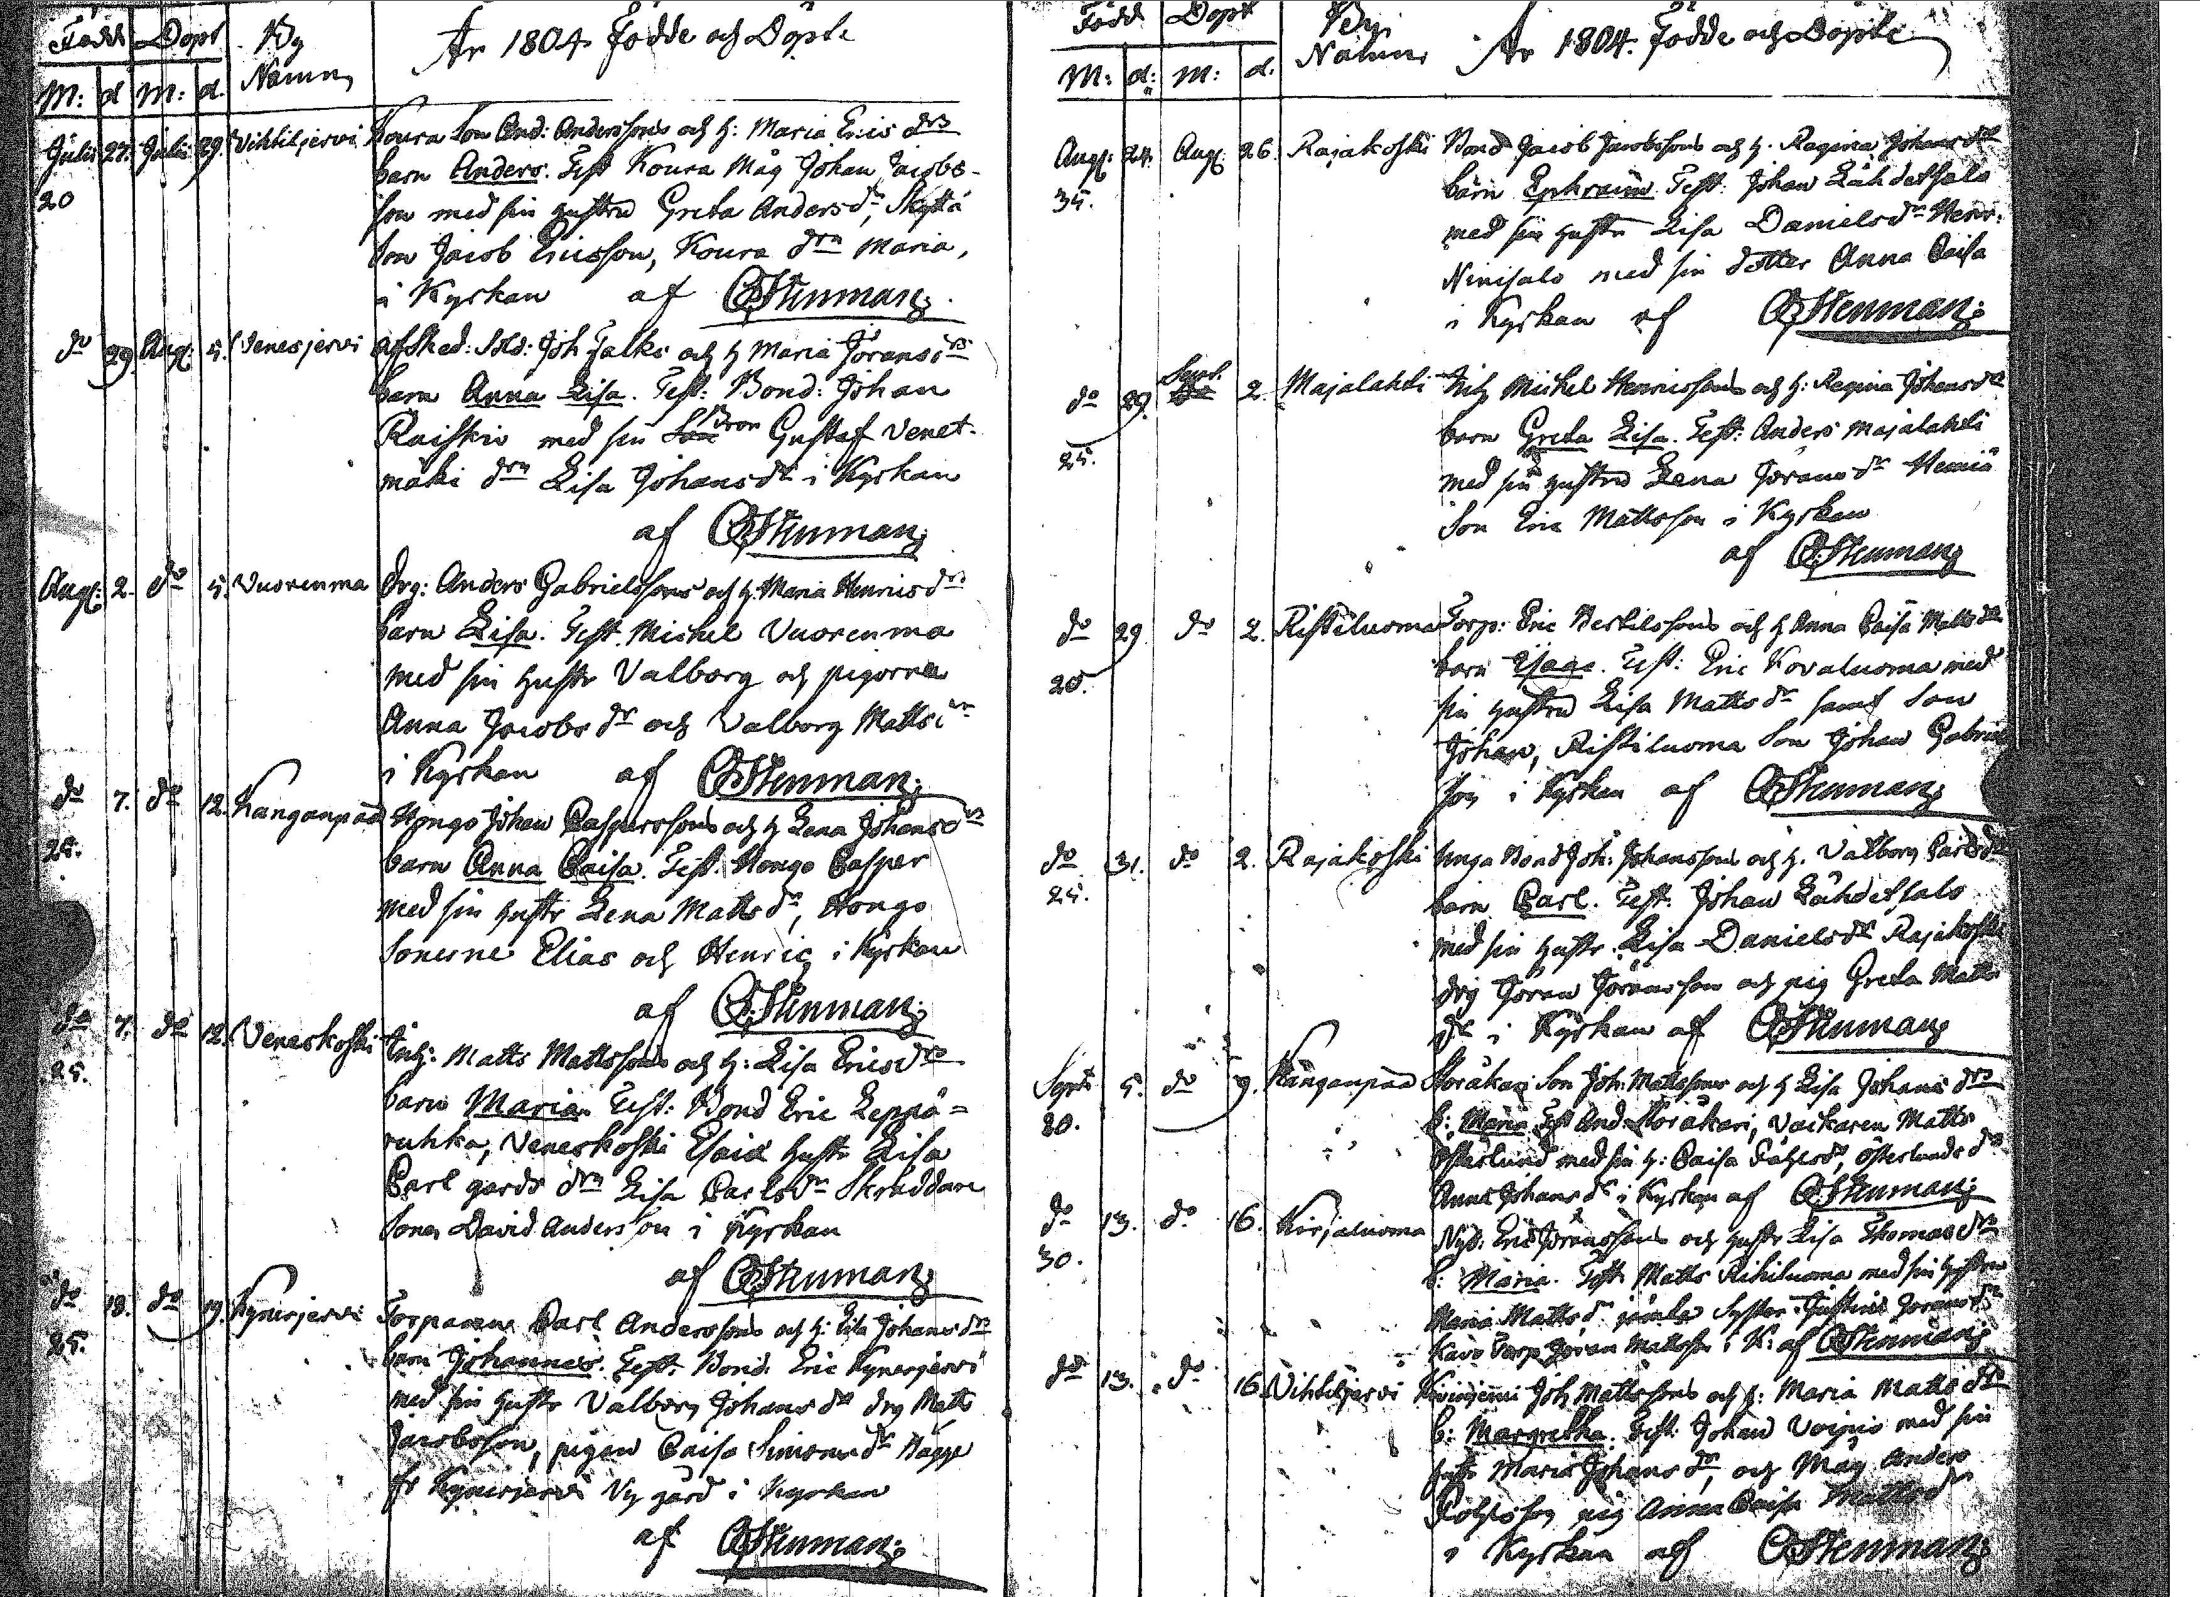 Född Döpt By Namn År 1804 Födde och Döpte
M: d M: d.
Julii 27. Julii 29. Vihtiljervi Koura Son And: Anderssons och h: Maria Erics drs
20 barn Anders. Test Koura Måg Johan Jacobs-
son med sin hustru Greta Anders dr, Skyttä
Son Jacob Ericsson, Koura drn Maria,
i Kyrkan af CStenman
do 29 Aug: 5. Venesjervi Afsked: Sold: Joh Falks och h Maria Jörans drs
barn Anna Lisa. Test: Bond: Johan
Raiskio med sin Bron Gustaf Venet-
mäki drn Lisa Johans dr i Kyrkan
af CStenman
Aug: 2. do 5. Vuorenma Drg: Anders Gabrielssons och h: Maria Henrics drs
barn Lisa. Test. Michel Vuorenma
med sin hustr Valborg och pigorna
Anna Jacobs dr och Valborg Matts dr
i Kyrkan af CStenman
do 7. do 12. Kanganpää Hongo Johan Caspersssons och h Lena Johans drs
25. barn Anna Caisa. Test. Hongo Casper
med sin hustr Lena Matts dr, Hongo
Sönerne Elias och Henric i Kyrkan
af CStenman
do 7. do 12. Veneskoski Inh: Matts Mattssons och h: Lisa Erics drs
25. barn Maria. Test: Bond Eric Leppä=
ruhka, Veneskoski Esaia hustr Lisa
Carl gårds drn Lisa Carls dr Skräddare
Sonen David Andersson i Kyrkan
af CStenman
do 18. do 19. Kynerjervi Torparen Carl Anderssons och h: Lisa Johans drs
25. barn Johannes. Test: Bond. Eric Kynerjervi
med sin hustr Valborg Johans dr drg Matts
Jacobsson, pigan Caisa Simons dr Hägge
fr Kynerjervi Ny gård i Kyrkan
af CStenman
Född Döpt By Namn År 1804. Födde och Döpte
M: d: M: d.
Aug: 24. Aug: 26. Rajakoski Bond Jacob Jacobssons och h. Regina Johans drs
35. barn Ephraim. Test: Johan Lähdetsalo
med sin hustr Lisa Daniels dr Henr:
Ninisalo med sin dotter Anna Caisa
i Kyrkan af CStenman
do 29. Sept. 2. Majalahti Inh Michel Henricssons och h: Regina Johans drs
25. barn Greta Lisa. Test: Anders Majalahti
med sin hustru Lena Jörans dr
Son Eric Mattsson i Kyrkan
af CStenman
do 29 do 2. Ristiluoma Torp: Eric Bertilssons och h Anna Caisa Matts drs
20. barn Isaac. Test: Eric Kovaluoma med
sin hustru Lisa Matts dr samt Son
Johan, Ristiluoma Son Johan Gabriel
son i Kyrkan af CStenman
do 31. do 2. Rajakoski Unga Bond Joh: Johanssons och h. Valborg Carls drs
25. barn Carl. Test: Johan Lähdetsalo
med sin hustr. Lisa Daniels dr Rajakoski
drg Jöran Jöransson och pig Greta Matts
dr i Kyrkan af CStenman
Sept: 5. do 9. Kanganpää Storåkari Son Joh: Mattssons och h Lisa Johans drs
20. b: Maria Test And: Storåkari, Matts
Österlund med sin h: Caisa dr, Österlunds dr
Anna Johans dr i Kyrkan af CStenman
do 13. do 16. Kirjaluoma Nyb: Eric Jöranssons och hustr Lisa Thomas drs
30. b: Maria. Test: Matts Rihiluoma med sin hustru
Maria Matts dr Syster Justina Jorans dr
Torp Jöran Mattsson i K: af CStenman
do 13. do 16. Vihtiljervi Joh Mattssons och h: Maria Matts drs
b: Margretha. Test: Johan Voipio med sin
hustr Maria Johans dr, och Måg Anders
pig Anna Caisa Matts dr
i Kyrkan af CStenman